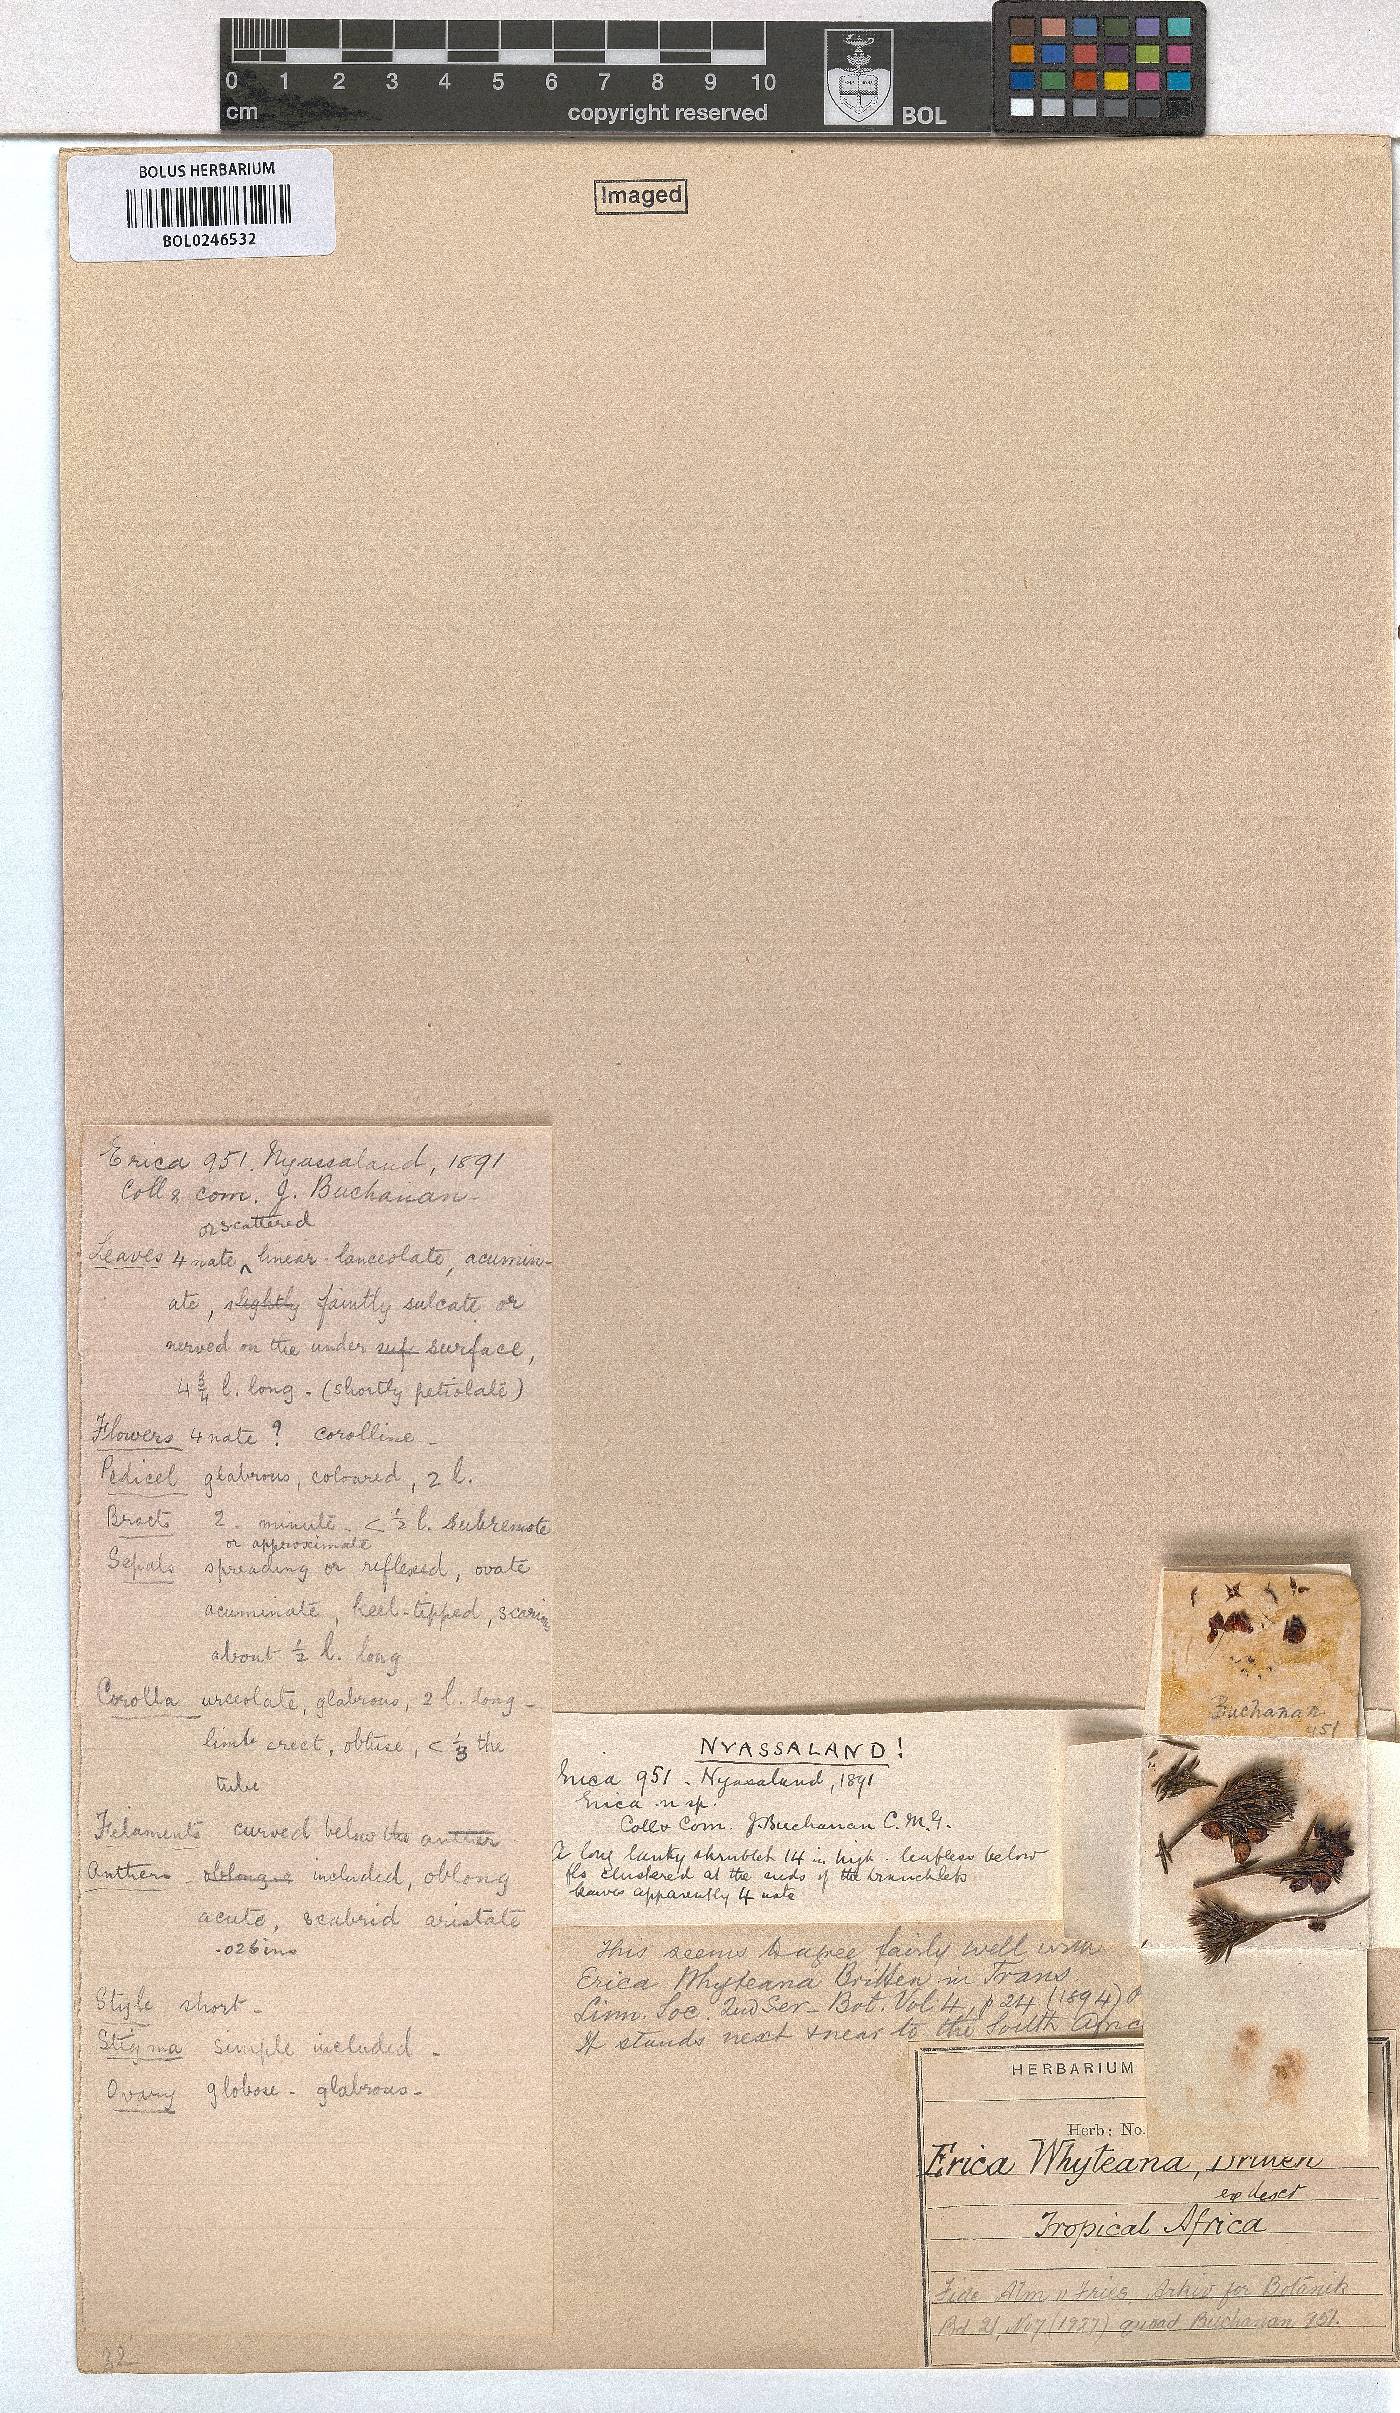 0 1 2 3 4 5 6 7 8 9 10
cm copyright reserved BOL
BOLUS HERBARIUM
BOL0246532
Imaged
Erica 951. Nyassaland, 1891
Coll & com. J. Buchanan -
or scattered
Leaves 4 nate ‸ linear-lanceolate, acumin-
ate, slightly faintly sulcate or
nerved on the under suf surface,
4 3/4 l. long - (shortly petiolate)
Flowers 4 nate ? corolline -
Pedicel glabrous, coloured, 2 l.
Bracts 2 - minute - < 1/2 l. subremote
or approximate
Sepals spreading or reflexed, ovate
acuminate, keel-tipped,
about 1/2 l. long
Corolla urceolate, glabrous, 2 l. long -
limb erect, obtuse, < 1/3 the
tube
Filaments curved below the anther
Anthers oblong included, oblong
acute, scabrid aristate
.026 ins
Style short -
Stigma simple included -
Ovary globose - glabrous -
32
NYASSALAND!
Erica 951 - Nyassaland, 1891
Erica n sp.
Coll & Com. J. Buchanan C.M.G.
A long lanky shrublet 14 in. high - leafless below
fls clustered at the ends of the branchlets
leaves apparently 4 nate
This seems to agree fairly well with
Erica Whyteana Britten in Trans
Linn. Soc. 2nd Ser - Bot. Vol. 4, p 24 (1894)
It stands next & near to the South Afric
Buchanan
951
HERBARIUM
Herb: No.
Erica Whyteana, Britten
ex descr
Tropical Africa
Fide Alm & Fries, Arkiv for Botanik
Bd 21, No 7 (1927) quoad Buchanan 951.